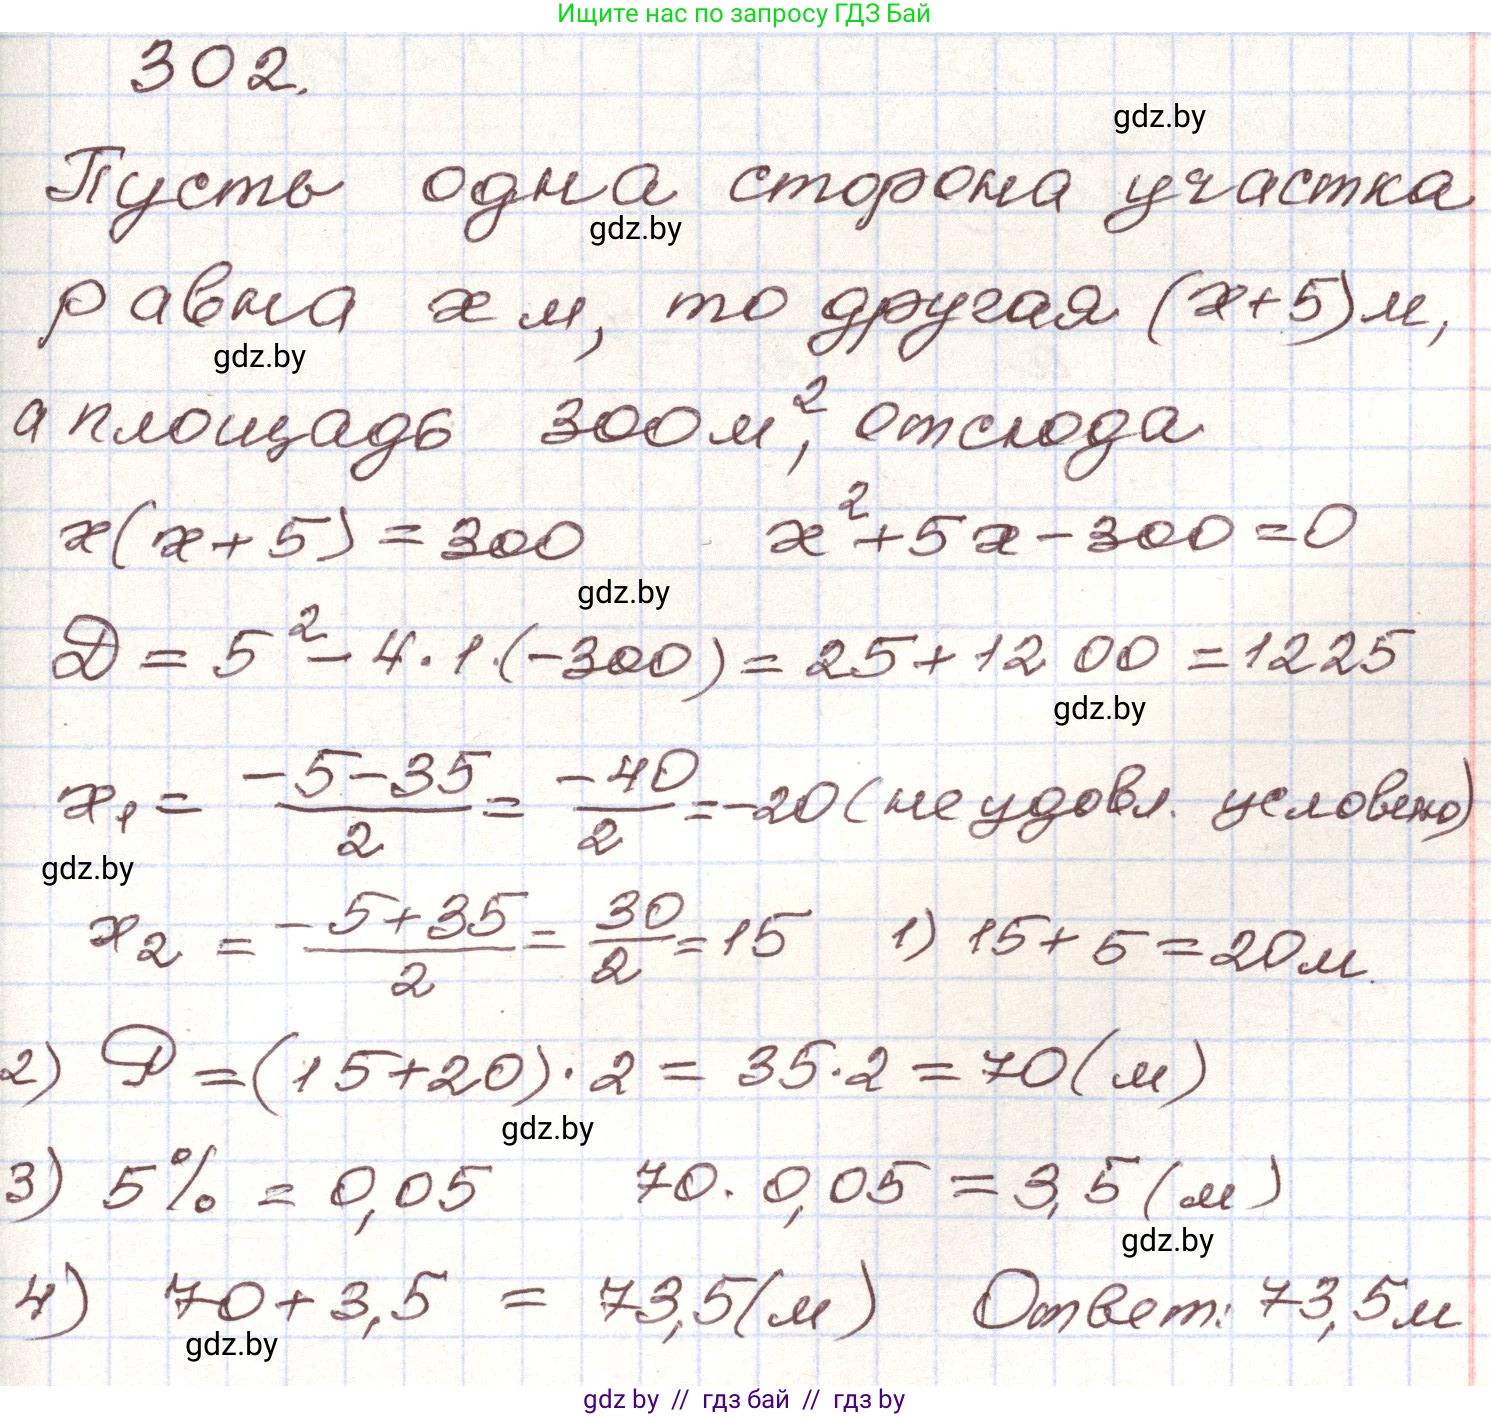 Ищите нас по запросу ГДЗ Бай
302.
gdz.by
Пусть одна сторона участка
gdz.by
равна x м, то другая (x+5) м,
gdz.by
а площадь 300 м², отсюда
x(x+5)=300 x²+5x-300=0
gdz.by
D = 5² - 4·1·(-300) = 25+1200 = 1225
gdz.by
x₁ = (-5-35)/2 = -40/2 = -20 (не удовл. условию)
gdz.by
x₂ = (-5+35)/2 = 30/2 = 15 1) 15+5=20 м.
2) P = (15+20)·2 = 35·2 = 70 (м)
gdz.by
3) 5% = 0,05 70·0,05 = 3,5 (м)
gdz.by
4) 70+3,5 = 73,5 (м) Ответ: 73,5 м
gdz.by
gdz.by // гдз бай // гдз by